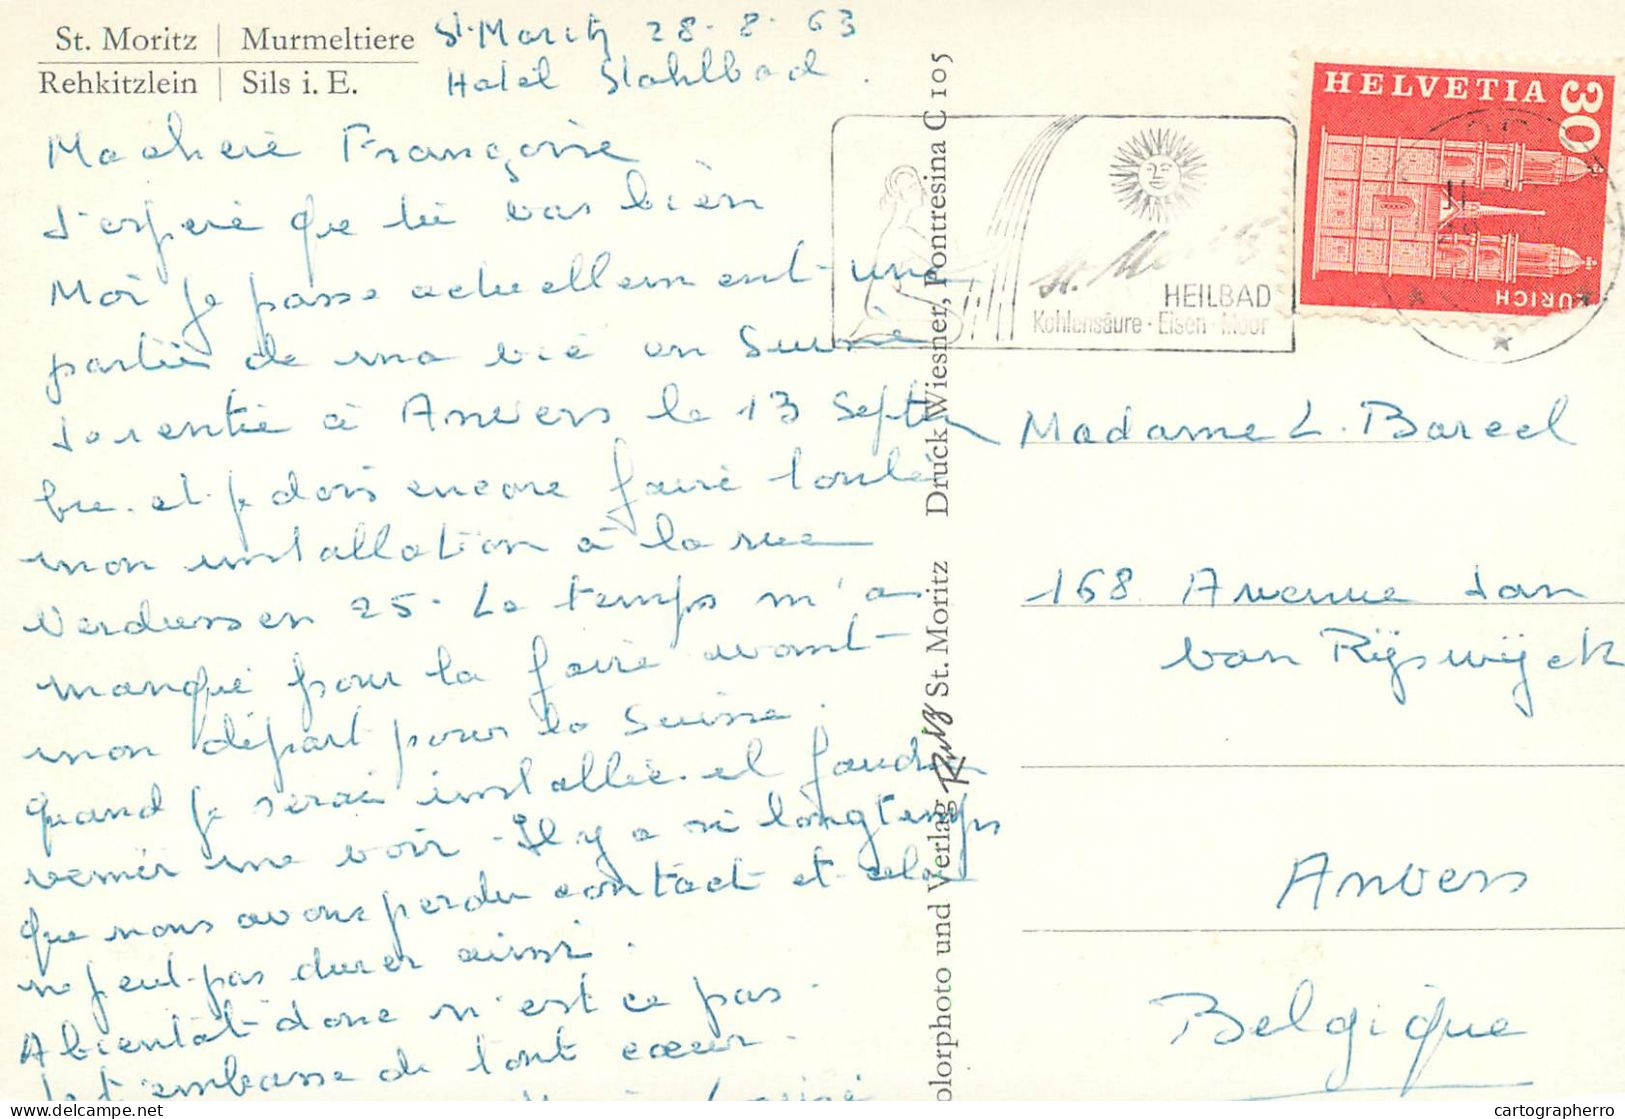 St. Moritz | Murmeltiere
Rehkitzlein | Sils i. E.
St. Moritz 28-8-63
Hotel Stahlbad.
Ma cherie Françoise
J'espère que tu vas bien
Moi je passe actuellement une
partie de ma vie en Suisse
Je rentre à Anvers le 13 Septem
bre. et je dois encore faire toute
mon installation à la rue
Verdussen 25. Le temps m'a
manqué pour la faire avant
mon départ pour la Suisse.
Quand je serai installée. il faudra
venir me voir - Il y a si longtemps
que nous avons perdu contact et cela
ne peut pas durer ainsi.
A bientôt donc n'est ce pas.
Je t'embrasse de tout coeur.
Colorphoto und Verlag St. Moritz Druck Wiesner, Pontresina C 105
St. Moritz
HEILBAD
Kohlensäure · Eisen · Moor
HELVETIA 30
ZÜRICH
Madame L. Bareel
168 Avenue Jan
van Rijswijck
Anvers
Belgique
cartographerro